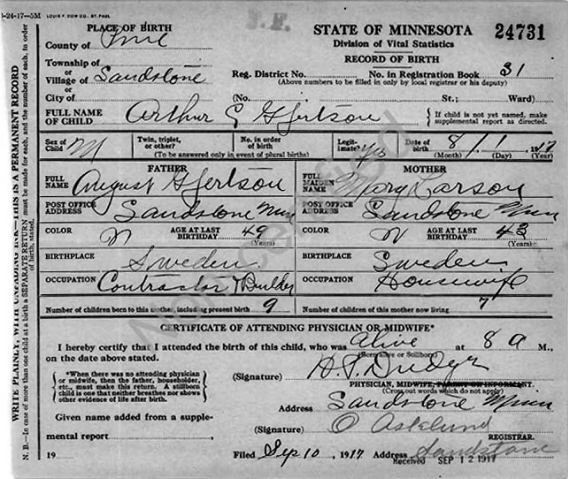 8-24-17-5M LOUIS F. DOW CO. ST. PAUL
PLACE OF BIRTH
County of Pine
Township of
or
Village of Sandstone
or
City of
STATE OF MINNESOTA
24731
Division of Vital Statistics
RECORD OF BIRTH
Reg. District No. No. in Registration Book 31
(Above numbers to be filled in only by local registrar or his deputy)
(No. St.; Ward)
FULL NAME OF CHILD Arthur E Gjertson
If child is not yet named, make supplemental report as directed.
Sex of Child M
Twin, triplet, or other?
No. in order of birth
(To be answered only in event of plural births)
Legitimate? yes
Date of birth 8 / 1 / 1917
(Month) (Day) (Year)
FATHER
FULL NAME August Gjertson
POST OFFICE ADDRESS Sandstone Minn
COLOR W AGE AT LAST BIRTHDAY 49
(Years)
BIRTHPLACE Sweden
OCCUPATION Contractor & Builder
MOTHER
FULL MAIDEN NAME Mary Larson
POST OFFICE ADDRESS Sandstone Minn
COLOR W AGE AT LAST BIRTHDAY 43
(Years)
BIRTHPLACE Sweden
OCCUPATION Housewife
Number of children born to this mother, including present birth 9
Number of children of this mother now living 7
CERTIFICATE OF ATTENDING PHYSICIAN OR MIDWIFE*
I hereby certify that I attended the birth of this child, who was Alive at 8 a M.,
(Born alive or Stillborn)
on the date above stated.
*When there was no attending physician
or midwife, then the father, householder,
etc., must make this return. A stillborn
child is one that neither breathes nor shows
other evidence of life after birth.
(Signature)
PHYSICIAN, MIDWIFE, PARENT OR INFORMANT.
(Cross out words which do not apply)
Address Sandstone Minn
Given name added from a supplemental report
19
(Signature) O Asklund
REGISTRAR.
Filed Sep 10, 1917 Address Sandstone
Received SEP 12 1917
WRITE PLAINLY, WITH UNFADING INK—THIS IS A PERMANENT RECORD
N. B.—In case of more than one child at a birth a SEPARATE RETURN must be made for each, and the number of each, in order of birth, stated.